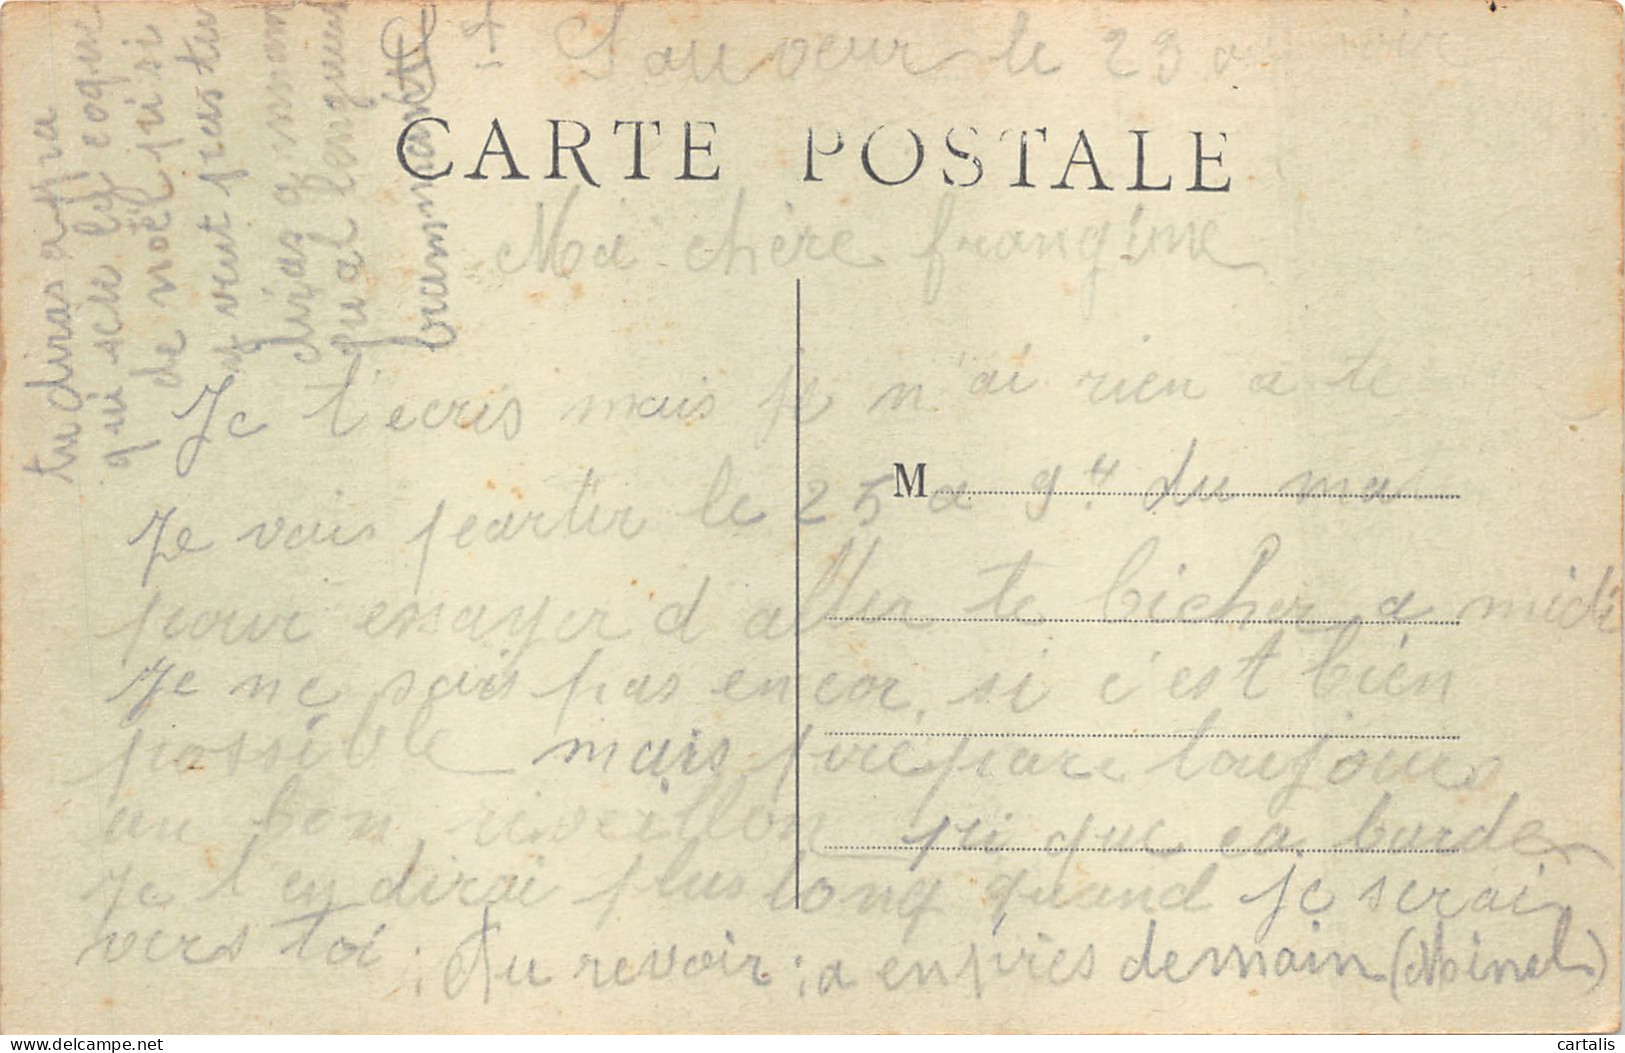 St Sauveur le 23 au soir
CARTE POSTALE
Ma chère frangine
Je t'ecris mais je n'ai rien a te
M
Je vais partir le 25 a 9h du mat
pour essayer d aller te bicher a midi
Je ne sais pas encor, si c'est bien
possible mais prepare toujours
un bon reveillon pri que ca barde
Je t'en dirai plus long quand je serai
vers toi ; Au revoir ; a en près demain (Minel)
tu diras a pra
qui scie les coque
de noël pisi
veut peus tu
diras a mam
qu al
bramman
cartalis